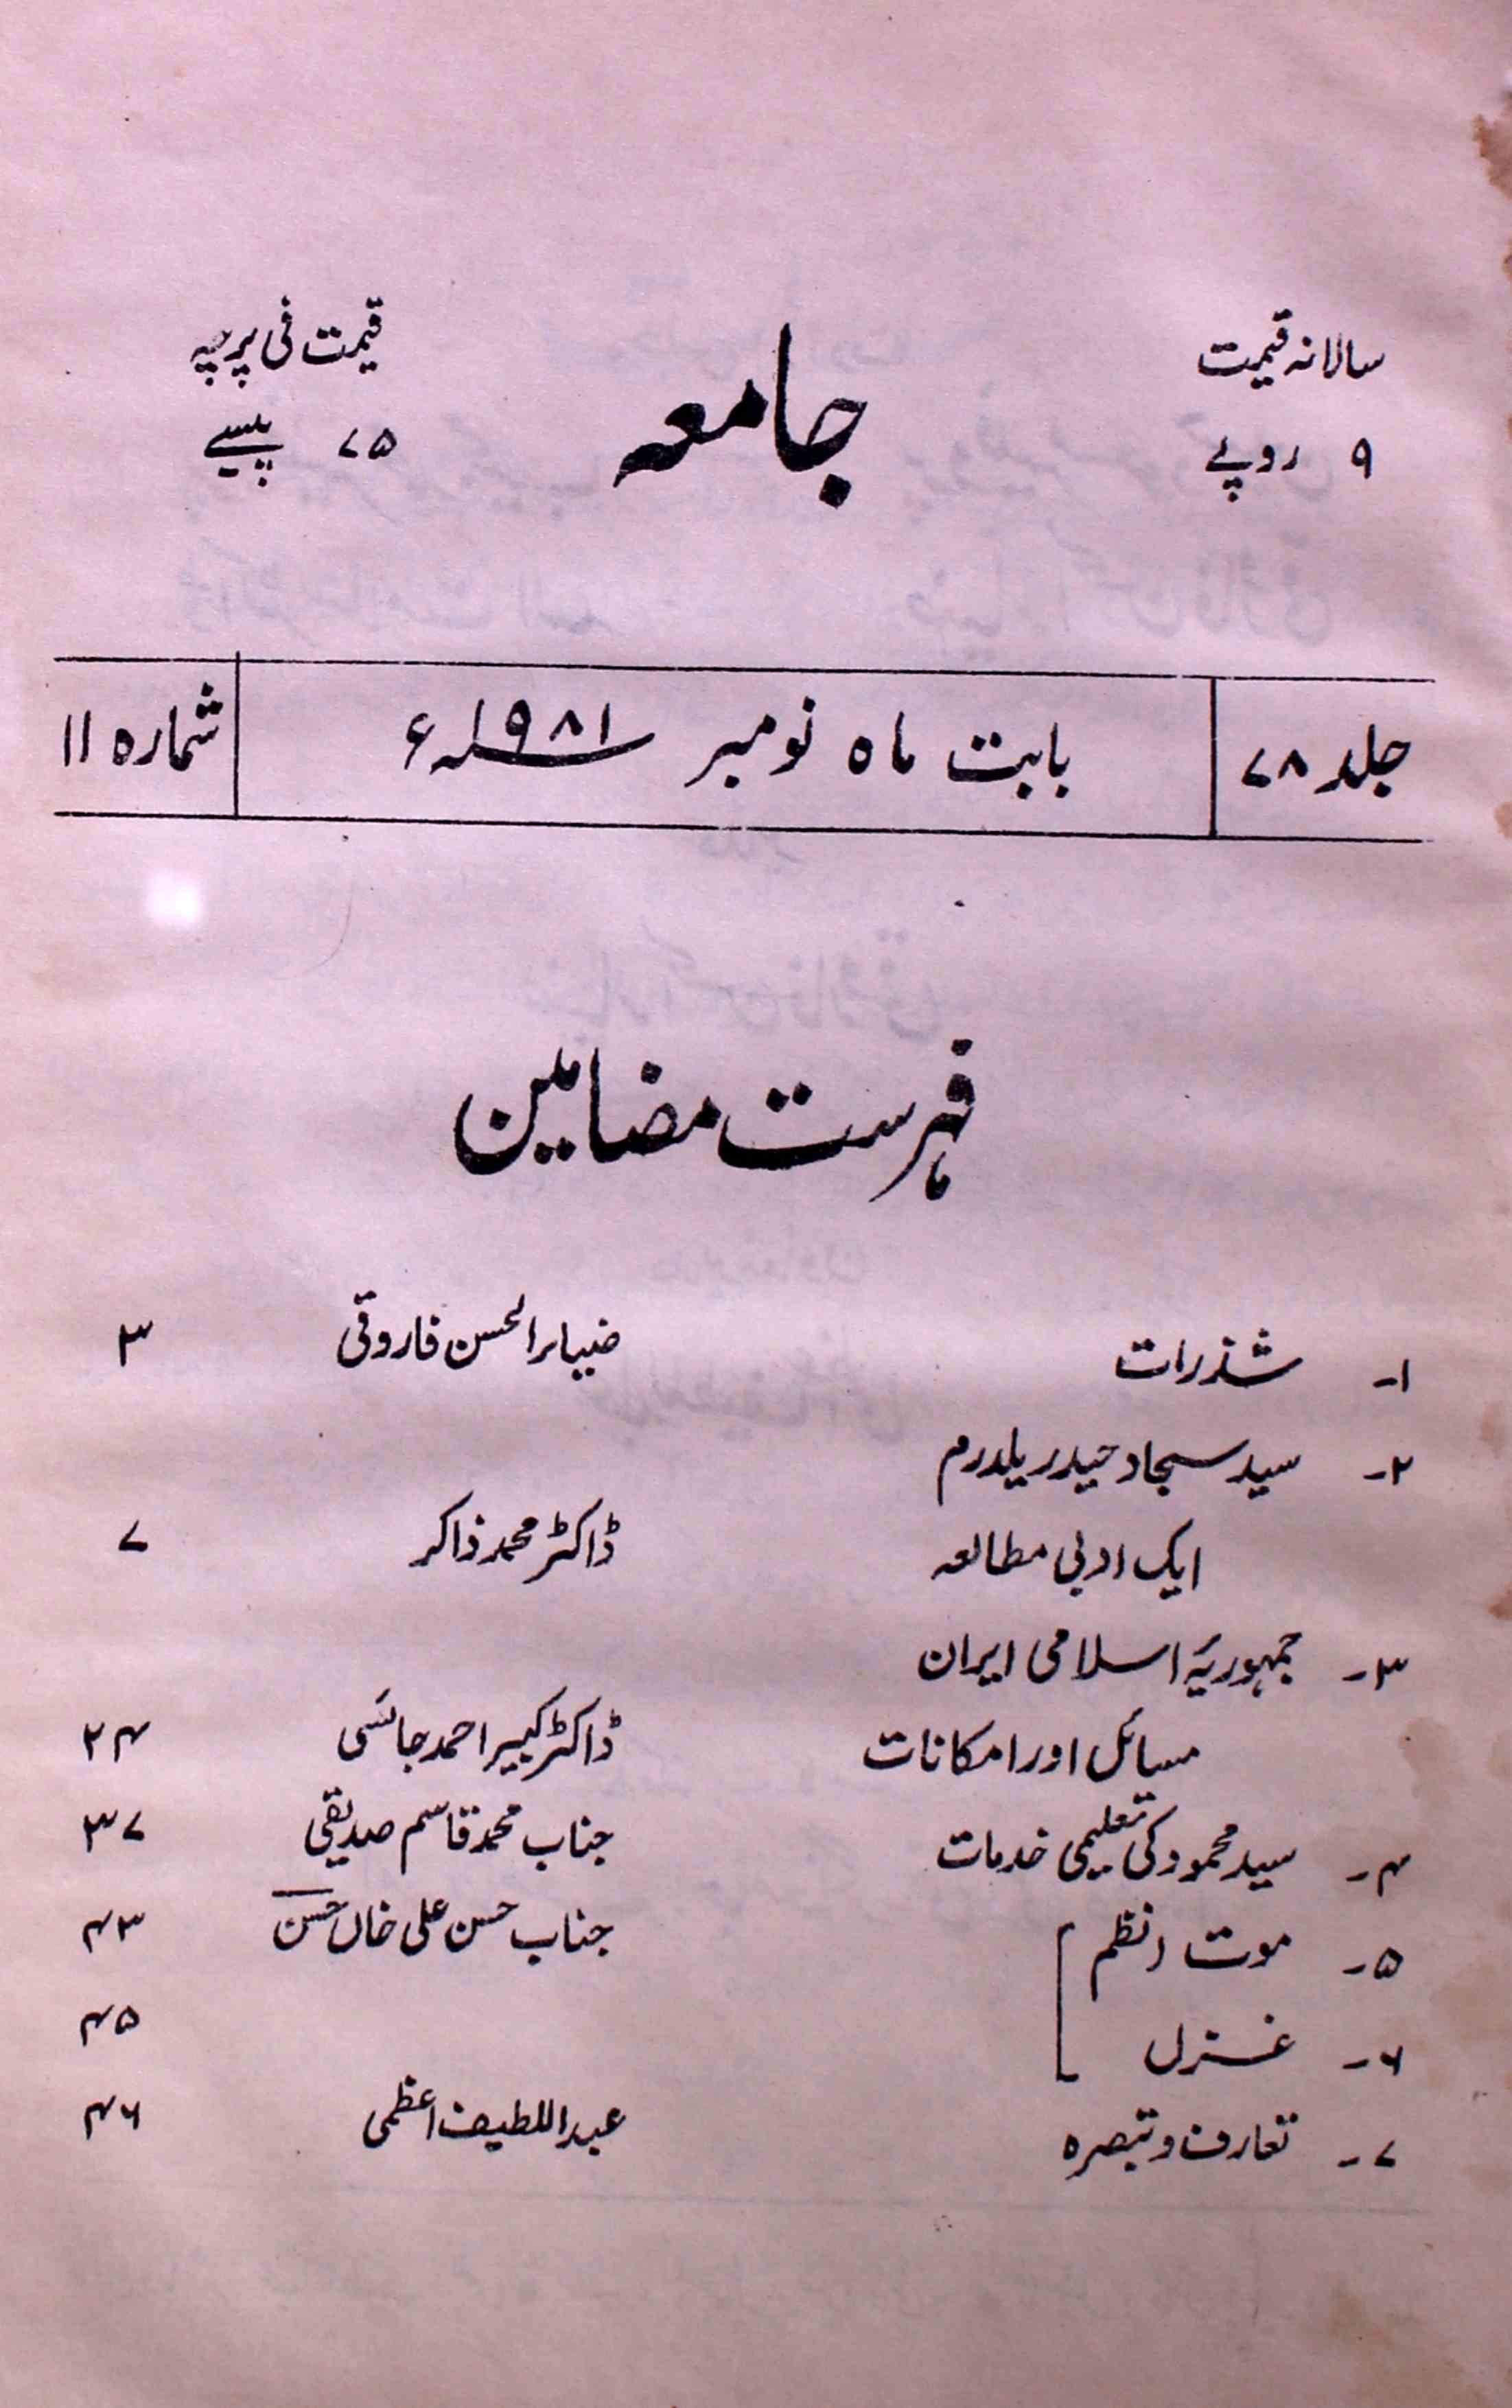 سالانہ قیمت
۹ روپے
جامعہ
قیمت فی پرچہ
۷۵ پیسے
جلد ۷۸
بابت ماہ نومبر ۱۹۸۱ء
شمارہ ۱۱
فہرست مضامین
۱۔ شذرات ضیاء الحسن فاروقی ۳
۲۔ سید سجاد حیدر یلدرم
ایک ادبی مطالعہ ڈاکٹر محمد ذاکر ۷
۳۔ جمہوریۂ اسلامی ایران
مسائل اور امکانات ڈاکٹر کبیر احمد جائسی ۲۴
۴۔ سید محمود کی تعلیمی خدمات جناب محمد قاسم صدیقی ۳۷
۵۔ موت (نظم جناب حسن علی خاں حسن ۴۳
۶۔ غزل ۴۵
۷۔ تعارف و تبصرہ عبداللطیف اعظمی ۴۶